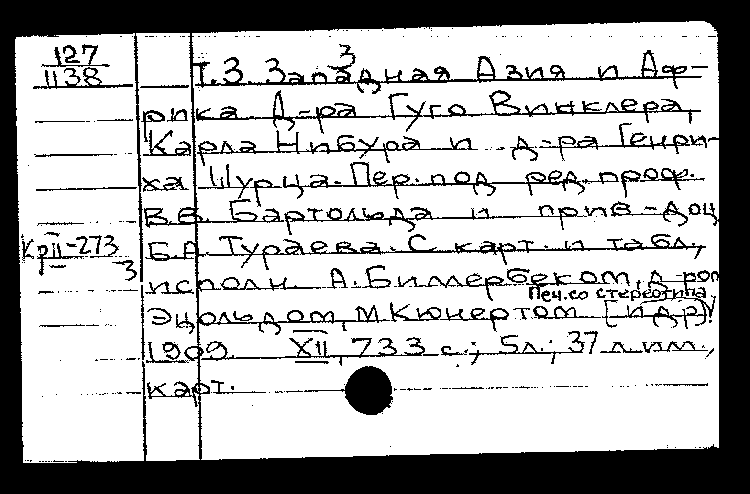 127
1138
3
Т.3 Западная Азия и Аф-
рика Д-ра Гуго Винклера,
Карла Нибура и д-ра Генри-
ха Шурца. Пер. под ред. проф.
В.В. Бартольда и прив-доц
КрII-273
3
Б.А. Тураева. С карт. и табл.,
исполн. А. Биллербеком, д-ром
Печ. со стереотипа.
Эцольдом, М Кюнертом [и др]
1909 XII, 733 с.; 5л.; 37 л. ил.,
карт.